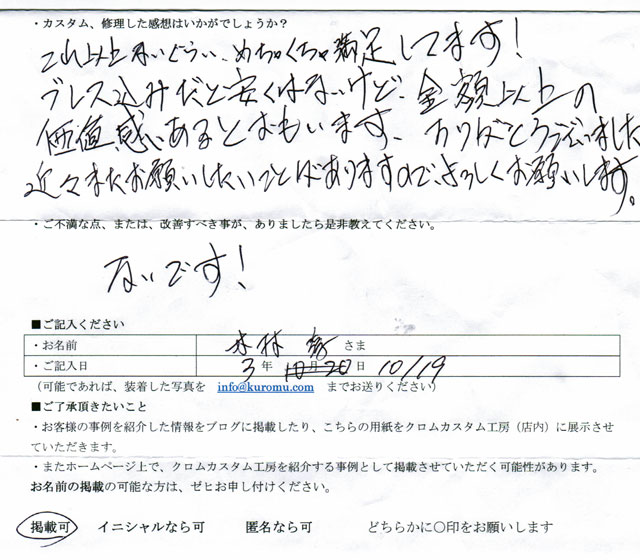 ・カスタム、修理した感想はいかがでしょうか？
これ以上ないぐらい、めちゃくちゃ満足してます！
ブレス込みだと安くはないけど、金額以上の
価値感いあるとおもいます、ありがとうございました
近々またお願いしたいことがありますので、よろしくお願いします。
・ご不満な点、または、改善すべき事が、ありましたら是非教えてください。
ないです！
■ご記入ください
・お名前 林 さま
・ご記入日 3 年 10 月 20 日 10/19
（可能であれば、装着した写真を info@kuromu.com までお送りください）
■ご了承頂きたいこと
・お客様の事例を紹介した情報をブログに掲載したり、こちらの用紙をクロムカスタム工房（店内）に展示させ
ていただきます。
・またホームページ上で、クロムカスタム工房を紹介する事例として掲載させていただく可能性があります。
お名前の掲載の可能な方は、ゼヒお申し付けください。
掲載可 イニシャルなら可 匿名なら可 どちらかに〇印をお願いします